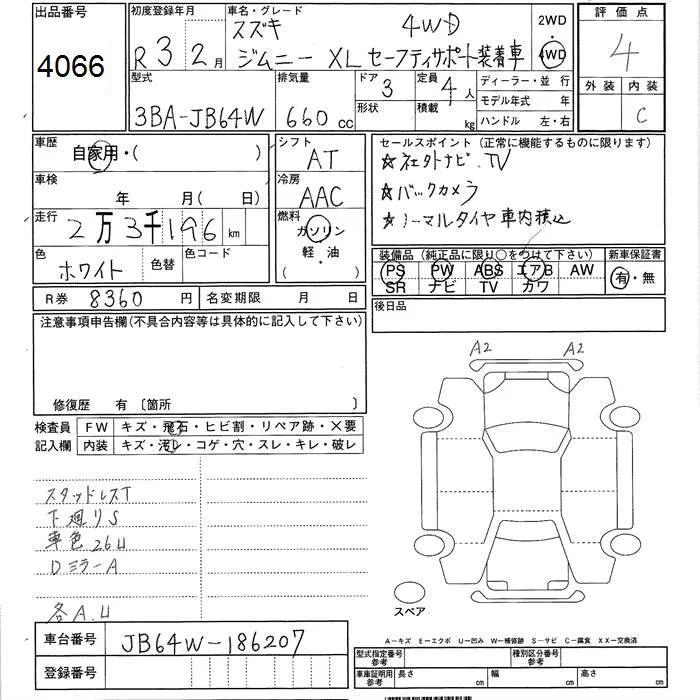 出品番号
4066
初度登録年月
R 3 2月
車名・グレード
スズキ 4WD
ジムニー XL セーフティサポート装着車
2WD
・
4WD
評価点
4
外装 内装
C
型式
3BA-JB64W
排気量
660 cc
ドア 3
形状
定員 4人
積載 kg
ディーラー・並行
モデル年式 年
ハンドル 左・右
車歴
自家用・( )
シフト
AT
車検
年 月( 日)
冷房
AAC
走行
2万3千196 km
燃料
ガソリン
軽・油
色
ホワイト
色替
色コード
R券 8360 円
名変期限 月 日
セールスポイント (正常に機能するものに限ります)
☆社外ナビ.TV
☆バックカメラ
☆ノーマルタイヤ車内積込
装備品 (純正品に限り○をつけて下さい)
新車保証書
PS PW ABS エアB AW
SR ナビ TV カワ
有・無
後日品
注意事項申告欄(不具合内容等は具体的に記入して下さい)
修復歴 有 〔箇所 〕
検査員
記入欄
FW キズ・飛石・ヒビ割・リペア跡・X要
内装 キズ・汚れ・コゲ・穴・スレ・キレ・破レ
スタッドレスT
下廻りS
車色26U
DミラーA
各A.U
A2 A2
スペア
A-キズ E-エクボ U-凹み W-補修跡 S-サビ C-腐食 XX-交換済
車台番号 JB64W-186207
登録番号
型式指定番号
参考
種別区分番号
参考
車庫証明用
参考
長さ cm 幅 cm 高さ cm